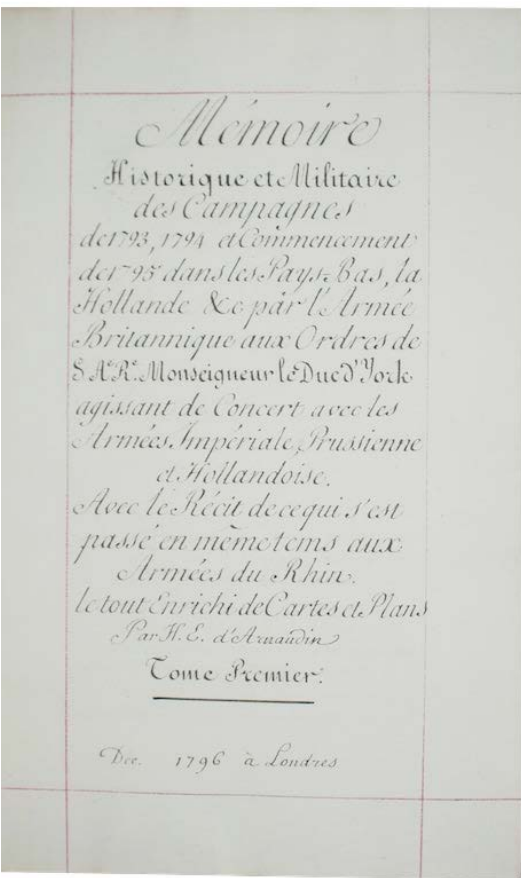 Mémoire
Historique et Militaire
des Campagnes
de 1793, 1794 et Commencement
de 1795 dans les Pays-Bas, la
Hollande &c par l'Armée
Britannique aux Ordres de
S. Ae. Re. Monseigneur le Duc d'York
agissant de Concert avec les
Armées Impériale, Prussienne
et Hollandoise.
Avec le Récit de ce qui s'est
passé en mêmetems aux
Armées du Rhin.
le tout Enrichi de Cartes et Plans
Par H. E. d'Arnaudin
Tome Premier.
Dec. 1796 à Londres